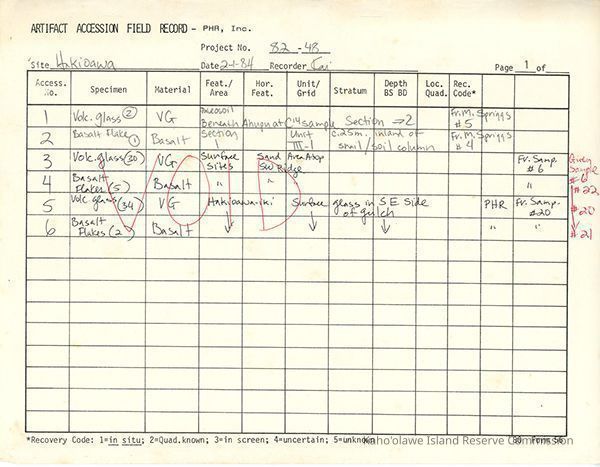 ARTIFACT ACCESSION FIELD RECORD - PHR, Inc.
Project No. 82-48
Site Hakioawa Date 2-1-84 Recorder Page 1 of
Access. No. Specimen Material Feat./ Area Hor. Feat. Unit/ Grid Stratum Depth BS BD Loc. Quad. Rec. Code*
1 Volc. glass (2) VG Paleosoil Beneath Ahu at C14 sample Section → 2 Fr. M. Spriggs #5
2 Basalt Flake (1) Basalt Section 1 Unit III-1 c.25m. inland of snail/soil column Fr. M. Spriggs #4
3 Volc. glass (30) VG Surface Sites Sand SW Ridge Area Atop Fr. Samp. #6
4 Basalt Flakes (5) Basalt " " " "
5 Volc glass (34) VG Hakioawa-iki Surface glass in SE side of gulch PHR Fr. Samp. #20
6 Basalt Flakes (2) Basalt ↓ ↓ ↓ " "
Sample #6
#22
#20
#21
*Recovery Code: 1=in situ; 2=Quad.known; 3=in screen; 4=uncertain; 5=unknown
Kaho'olawe Island Reserve Commission